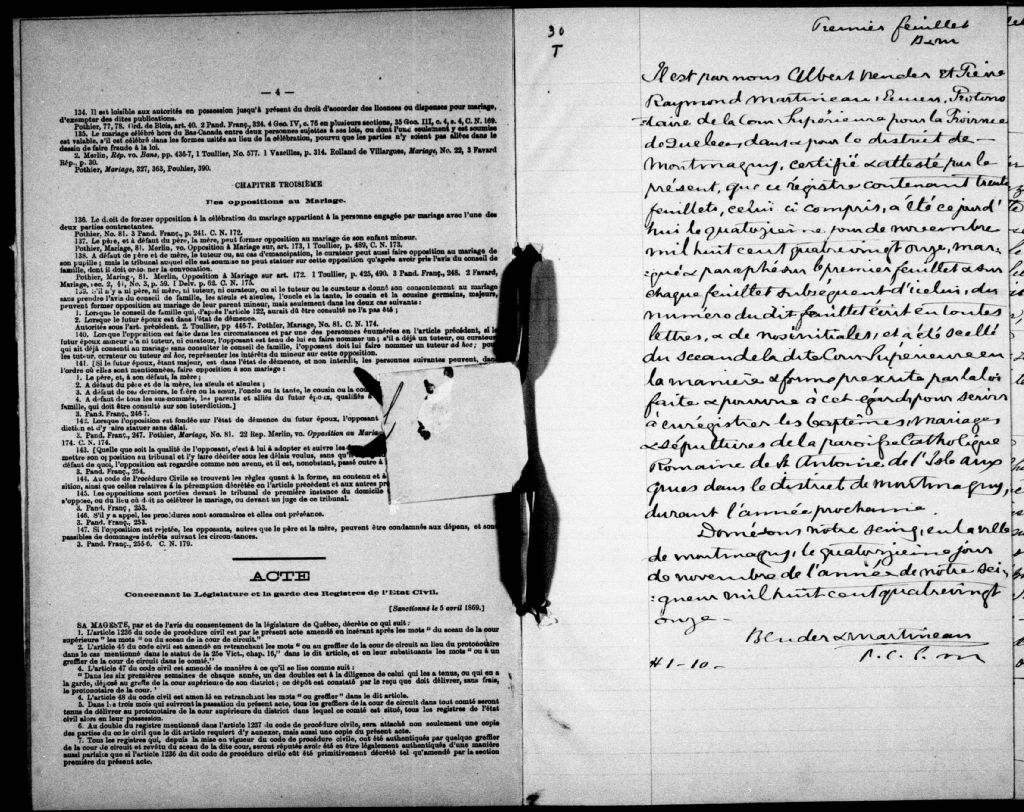 — 4 —
134. Il est loisible aux autorités en possession jusqu'à présent du droit d'accorder des licences ou dispenses pour mariage,
d'exempter des dites publications.
Pothier, 77, 78. Ord. de Blois, art. 40. 2 Pand. Franç., 324. 4 Geo. IV, c. 75 en plusieurs sections, 35 Geo. III, c. 4, s. 4, C. N. 169.
135. Le mariage célébré hors du Bas-Canada entre deux personnes sujettes à ses lois, ou dont l'une seulement y est soumise
est valable, s'il est célébré dans les formes usitées au lieu de la célébration, pourvu que les parties n'y soient pas allées dans le
dessin de faire fraude à la loi.
2. Merlin, Rép. vo. Bans, pp. 435-7, 1 Toullier, No. 577. 1 Vazeilles, p. 314. Rolland de Villargues, Mariage, No. 22, 3 Favard
Rép., p. 30.
Pothier, Mariage, 327, 363, Pouhier, 390.
CHAPITRE TROISIÈME
Des oppositions au Mariage.
136. Le droit de former opposition à la célébration du mariage appartient à la personne engagée par mariage avec l'une des
deux parties contractantes.
Pothier, No. 81. 3 Pand. Franç., p. 241. C. N. 172.
137. Le père, et à défaut du père, la mère, peut former opposition au mariage de son enfant mineur.
Pothier, Mariage, 81. Merlin, vo. Opposition à Mariage sur, art. 173, 1 Toullier, p. 489, C. N. 173.
138. A défaut de père et de mère, le tuteur ou, au cas d'émancipation, le curateur peut aussi faire opposition au mariage de
son pupille; mais le tribunal auquel elle est soumise ne peut statuer sur cette opposition qu'après avoir pris l'avis du conseil de
famille, dont il doit ordonner la convocation.
Pothier, Mariage, 81. Merlin, Opposition à Mariage sur art. 172. 1 Toullier, p. 425, 490. 3 Pand. Franç., 248. 2 Favard,
Mariage, sec. 2, § 1, No. 3, p. 59. 1 Delv. p. 62. C. N. 175.
139. S'il n'y a ni père, ni mère, ni tuteur, ni curateur, ou si le tuteur ou le curateur a donné son consentement au mariage
sans prendre l'avis du conseil de famille, les aïeuls et aïeules, l'oncle et la tante, le cousin et la cousine germains, majeurs,
peuvent former opposition au mariage de leur parent mineur, mais seulement dans les deux cas suivants:
1. Lorsque le conseil de famille qui, d'après l'article 122, aurait dû être consulté ne l'a pas été;
2. Lorsque le futur époux est dans l'état de démence.
Autorités sous l'art. précédent. 2 Toullier, pp 446-7. Pothier, Mariage, No. 81. C. N. 174.
140. Lorsque l'opposition est faite dans les circonstances et par une des personnes énumérées en l'article précédent, si le
futur époux mineur n'a ni tuteur, ni curateur, l'opposant est tenu de lui en faire nommer un; s'il a déjà un tuteur, ou curateur
qui ait déjà consenti au mariage sans consulter le conseil de famille, l'opposant doit lui faire nommer un tuteur ad hoc; pour
les tuteur, curateur ou tuteur ad hoc, représenter les intérêts du mineur sur cette opposition.
141. [Si le futur époux, étant majeur, est dans l'état de démence, et non interdit, les personnes suivantes peuvent, dans
l'ordre où elles sont mentionnées, faire opposition à son mariage:
1. Le père, et, à son défaut, la mère;
2. A défaut du père et de la mère, les aïeuls et aïeules;
3. A défaut de ces derniers, le frère ou la sœur, l'oncle ou la tante, le cousin ou la
4. A défaut de tous les sus-nommés, les parents et alliés du futur époux, qualifiés à
famille, qui doit être consulté sur son interdiction.]
3. Pand. Franç. 246-7.
142. Lorsque l'opposition est fondée sur l'état de démence du futur époux, l'opposant
diction et d'y faire statuer sans délai.
3. Pand. Franç., 247. Pothier, Mariage, No. 81. 22 Rep. Merlin, vo. Opposition au Mariage
174. C. N. 174.
143. [Quelle que soit la qualité de l'opposant, c'est à lui à adopter et suivre les
mettre son opposition au tribunal et l'y faire décider sous les délais voulus, sans qu'
défaut de quoi, l'opposition est regardée comme non avenu, et il est, nonobstant, passé outre à
3. Pand. Franç., 254.
144. Au code de Procédure Civile se trouvent les règles quant à la forme, au contenu et à
sition, ainsi que celles relatives à la péremption décrétée en l'article précédent et aux autres
145. Les oppositions sont portées devant le tribunal de première instance du domicile
s'oppose, ou du lieu où doit se célébrer le mariage, ou devant un juge de ce tribunal.
3. Pand. Franç., 253.
146. S'il y a appel, les procédures sont sommaires et elles ont préséance.
3. Pand. Franç., 253.
147. Si l'opposition est rejetée, les opposants, autres que le père et la mère, peuvent être condamnés aux dépens, et sont
passibles de dommages intérêts suivant les circonstances.
3. Pand. Franç., 255-6. C. N. 179.
ACTE
Concernant la Législature et la garde des Registres de l'Etat Civil.
[Sanctionné le 5 avril 1869.]
SA MAGESTE, par et de l'avis du consentement de la législature de Québec, décrète ce qui suit:
1. L'article 1236 du code de procédure civil est par le présent acte amendé en insérant après les mots "du sceau de la cour
supérieure" les mots "ou du sceau de la cour de circuit."
2. L'article 45 du code civil est amendé en retranchant les mots "ou au greffier de la cour de circuit au lieu du protonotaire
dans le cas mentionné dans le statut de la 25e Vict., chap. 16," dans le dit article, et en leur substituant les mots "ou à un
greffier de la cour de circuit dans le comté."
4. L'article 47 du code civil est amendé de manière à ce qu'il se lise comme suit:
"Dans les six premières semaines de chaque année, un des doubles est à la diligence de celui qui les a tenus, ou qui en a
la garde, déposé au greffe de la cour supérieure de son district; ce dépôt est constaté par le reçu que doit délivrer, sans frais,
le protonotaire de la cour.'
4. L'article 48 du code civil est amendé en retranchant les mots "ou greffier" dans le dit article.
5. Dans les trois mois qui suivront la passation du présent acte, tous les greffiers de la cour de circuit dans tout comté seront
tenus de délivrer au protonotaire de la cour supérieure du district dans lequel ce comté est situé, tous les registres de l'état
civil alors en leur possession.
6. Au double du registre mentionné dans l'article 1237 du code de procédure civile, sera attaché non seulement une copie
des parties du code civil que le dit article requiert d'y annexer, mais aussi une copie du présent acte.
7. Tous les registres qui, depuis la mise en vigueur du code de procédure civile, ont été authentiqués par quelque greffier
de la cour de circuit et revêtu du sceau de la dite cour, seront réputés avoir été et être légalement authentiqués d'une manière
aussi parfaite que si l'article 1236 du dit code de procédure civile eût été primitivement décrété tel qu'amendé par la section
première du présent acte.
30
T
Premier feuillet
B&M
Il est par nous Albert Bender et Pierre
Raymond Martineau, Ecuiers, Protono-
taire de la Cour Supérieure pour la Province
de Québec, dans & pour le district de
Montmagny, certifié & attesté par le
présent, que ce régistre contenant trente
feuillets, celui ci compris, a été ce jourd'
hui le quatorzieme jour de novembre
mil huit cent quatre vingt onze, mar-
qué & paraphé sur le premier feuillet & sur
chaque feuillet subséquent d'icelui, du
numéro du dit feuillet écrit en toutes
lettres, & de nos initiales, et a été scellé
du sceau de la dite Cour Supérieure en
la manière & forme prescrite par la loi
faite & pourvue à cet égard, pour servir
à enrégistrer les baptêmes, Mariages
& sépultures de la paroisse Catholique
Romaine de St Antoine de l'Isle aux
Grues dans le district de Montmagny,
durant l'année prochaine.
Donné sous notre seing, en la ville
de Montmagny, le quatorzieme jour
de novembre de l'année de notre Sei-
gneur mil huit cent quatre vingt
onze -
Bender & Martineau
P. C. S. M
#1-10-